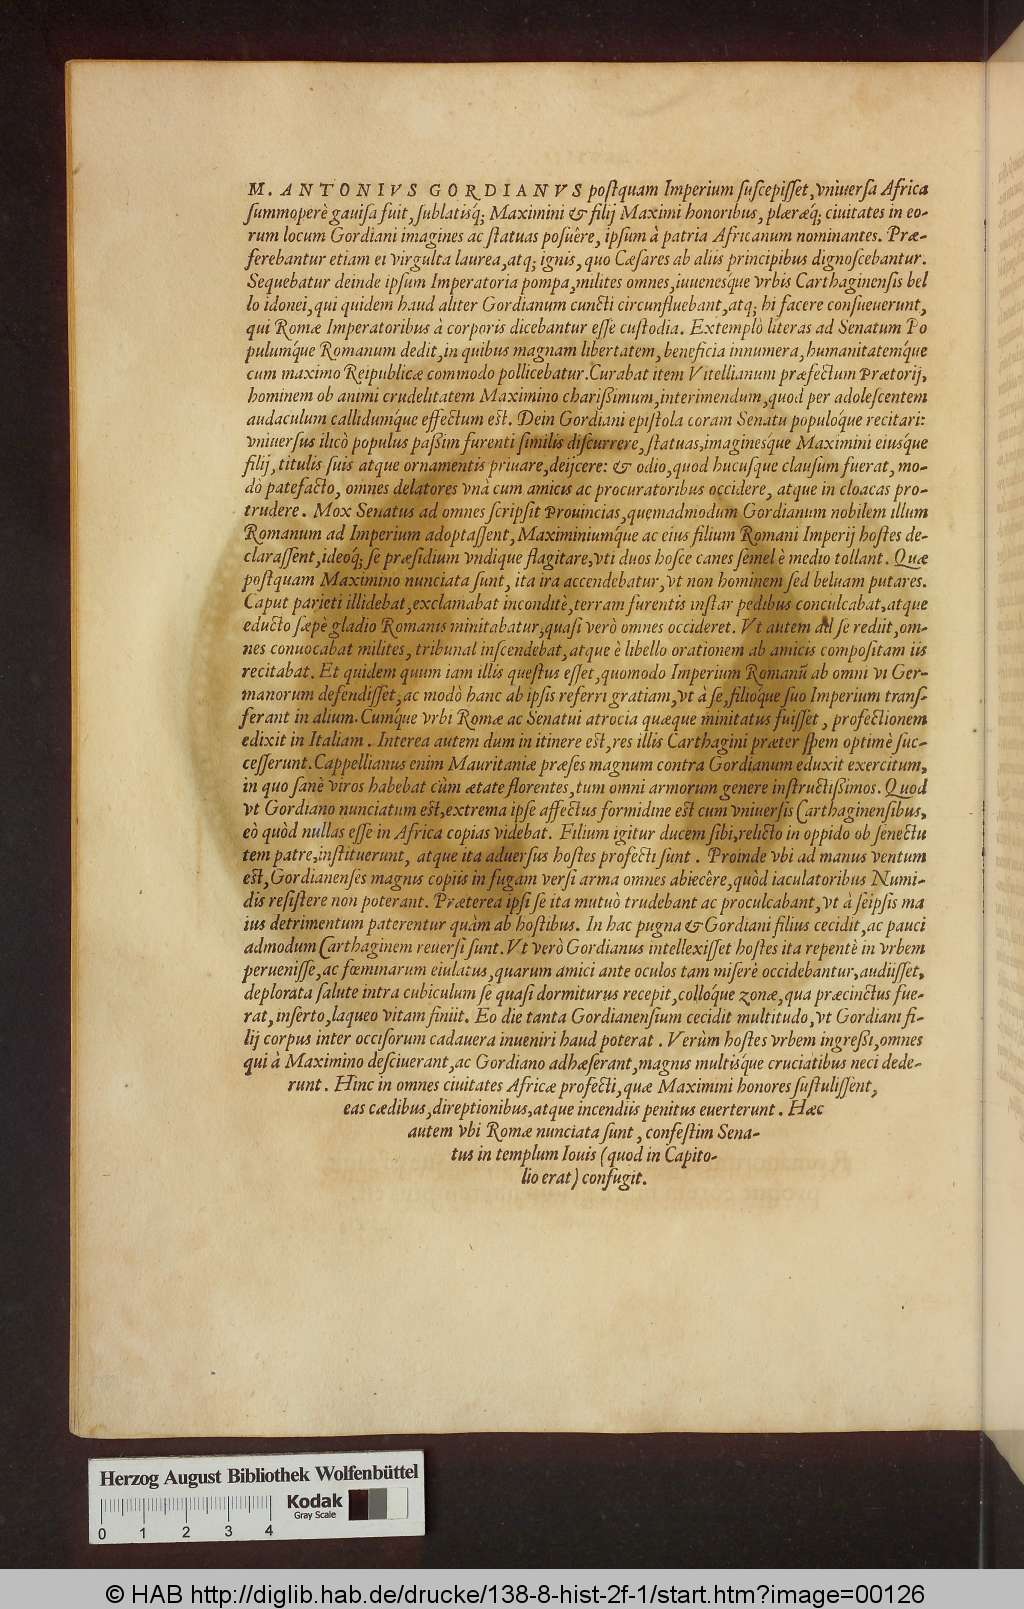 M. ANTONIVS GORDIANVS postquam Imperium ſuſcepiſſet, vniuerſa Africa
ſummoperè gauiſa fuit, ſublatiſq́; Maximini & filij Maximi honoribus, pleræq́; ciuitates in eo-
rum locum Gordiani imagines ac ſtatuas poſuêre, ipſum à patria Africanum nominantes. Præ-
ferebantur etiam ei virgulta laurea, atq; ignis, quo Cæſares ab aliis principibus dignoſcebantur.
Sequebatur deinde ipſum Imperatoria pompa, milites omnes, iuueneſque vrbis Carthaginenſis bel
lo idonei, qui quidem haud aliter Gordianum cuncti circunfluebant, atq; hi facere conſueuerunt,
qui Romæ Imperatoribus à corporis dicebantur eſſe cuſtodia. Extemplò literas ad Senatum Po
pulumq́ue Romanum dedit, in quibus magnam libertatem, beneficia innumera, humanitatemq́ue
cum maximo Reipublicæ commodo pollicebatur. Curabat item Vitellianum præfectum Prætorij,
hominem ob animi crudelitatem Maximino chariſſimum, interimendum, quod per adoleſcentem
audaculum callidumq́ue effectum eſt. Dein Gordiani epiſtola coram Senatu populoq́ue recitari:
vniuerſus ilicò populus paſſim furenti ſimilis diſcurrere, ſtatuas, imagineſque Maximini eiuſque
filij, titulis ſuis atque ornamentis priuare, deijcere: & odio, quod hucuſque clauſum fuerat, mo-
dò patefacto, omnes delatores vnà cum amicis ac procuratoribus occidere, atque in cloacas pro-
trudere. Mox Senatus ad omnes ſcripſit Prouincias, quemadmodum Gordianum nobilem illum
Romanum ad Imperium adoptaſſent, Maximiniumq́ue ac eius filium Romani Imperij hoſtes de-
claraſſent, ideoq́; ſe præſidium vndique flagitare, vti duos hoſce canes ſemel è medio tollant. Quæ
poſtquam Maximino nunciata ſunt, ita ira accendebatur, vt non hominem ſed beluam putares.
Caput parieti illidebat, exclamabat inconditè, terram furentis inſtar pedibus conculcabat, atque
educto ſæpè gladio Romanis minitabatur, quaſi verò omnes occideret. Vt autem ad ſe rediit, om-
nes conuocabat milites, tribunal inſcendebat, atque è libello orationem ab amicis compoſitam iis
recitabat. Et quidem quum iam illis queſtus eſſet, quomodo Imperium Romanū ab omni vi Ger-
manorum defendiſſet, ac modò hanc ab ipſis referri gratiam, vt à ſe, filioq́ue ſuo Imperium tranſ-
ferant in alium. Cumq́ue vrbi Romæ ac Senatui atrocia quæque minitatus fuiſſet, profectionem
edixit in Italiam. Interea autem dum in itinere eſt, res illis Carthagini præter ſpem optimè ſuc-
ceſſerunt. Cappellianus enim Mauritaniæ præſes magnum contra Gordianum eduxit exercitum,
in quo ſanè viros habebat cùm ætate florentes, tum omni armorum genere inſtructiſſimos. Quod
vt Gordiano nunciatum eſt, extrema ipſe affectus formidine eſt cum vniuerſis Carthaginenſibus,
eò quòd nullas eſſe in Africa copias videbat. Filium igitur ducem ſibi, relicto in oppido ob ſenectu
tem patre, inſtituerunt, atque ita aduerſus hoſtes profecti ſunt. Proinde vbi ad manus ventum
eſt, Gordianenſes magnis copiis in fugam verſi arma omnes abiecêre, quòd iaculatoribus Numi-
dis reſiſtere non poterant. Præterea ipſi ſe ita mutuò trudebant ac proculcabant, vt à ſeipſis ma
ius detrimentum paterentur quàm ab hoſtibus. In hac pugna & Gordiani filius cecidit, ac pauci
admodum Carthaginem reuerſi ſunt. Vt verò Gordianus intellexiſſet hoſtes ita repentè in vrbem
perueniſſe, ac fœminarum eiulatus, quarum amici ante oculos tam miſerè occidebantur, audiiſſet,
deplorata ſalute intra cubiculum ſe quaſi dormiturus recepit, colloq́ue zonæ, qua præcinctus fue-
rat, inſerto, laqueo vitam finiit. Eo die tanta Gordianenſium cecidit multitudo, vt Gordiani fi-
lij corpus inter occiſorum cadauera inueniri haud poterat. Verùm hoſtes vrbem ingreſſi, omnes
qui à Maximino deſciuerant, ac Gordiano adhæſerant, magnis multiſq́ue cruciatibus neci dede-
runt. Hinc in omnes ciuitates Africæ profecti, quæ Maximini honores ſuſtuliſſent,
eas cædibus, direptionibus, atque incendiis penitus euerterunt. Hæc
autem vbi Romæ nunciata ſunt, confeſtim Sena-
tus in templum Iouis (quod in Capito-
lio erat) confugit.
Herzog August Bibliothek Wolfenbüttel
Kodak
Gray Scale
0 1 2 3 4
© HAB http://diglib.hab.de/drucke/138-8-hist-2f-1/start.htm?image=00126